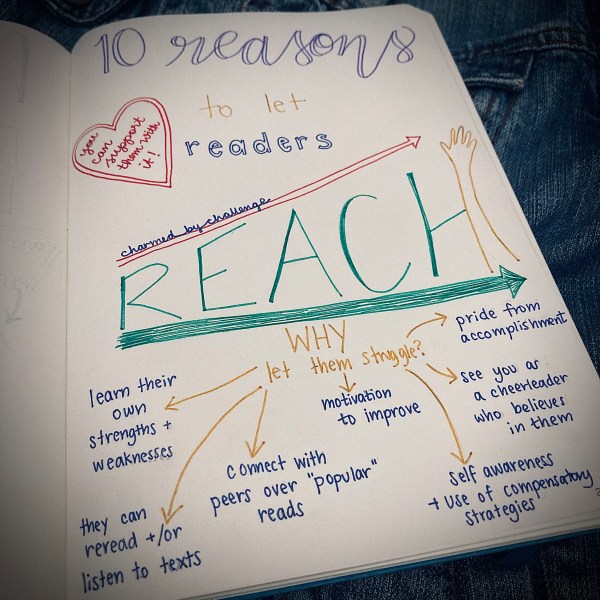 10 reasons
to let
readers
you
can
support
them with
it!
charmed by challenge
REACH
WHY
let them struggle?
pride from
accomplishment
learn their
own
strengths +
weaknesses
motivation
to improve
see you as
a cheerleader
who believes
in them
connect with
peers over "popular"
reads
self awareness
+ use of compensatory
strategies
they can
reread +/or
listen to texts